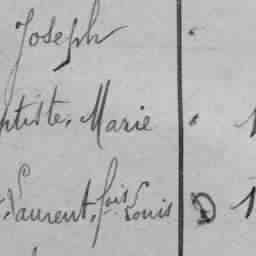 Joseph
ptiste, Marie " 1
Laurent, fois Louis D 1